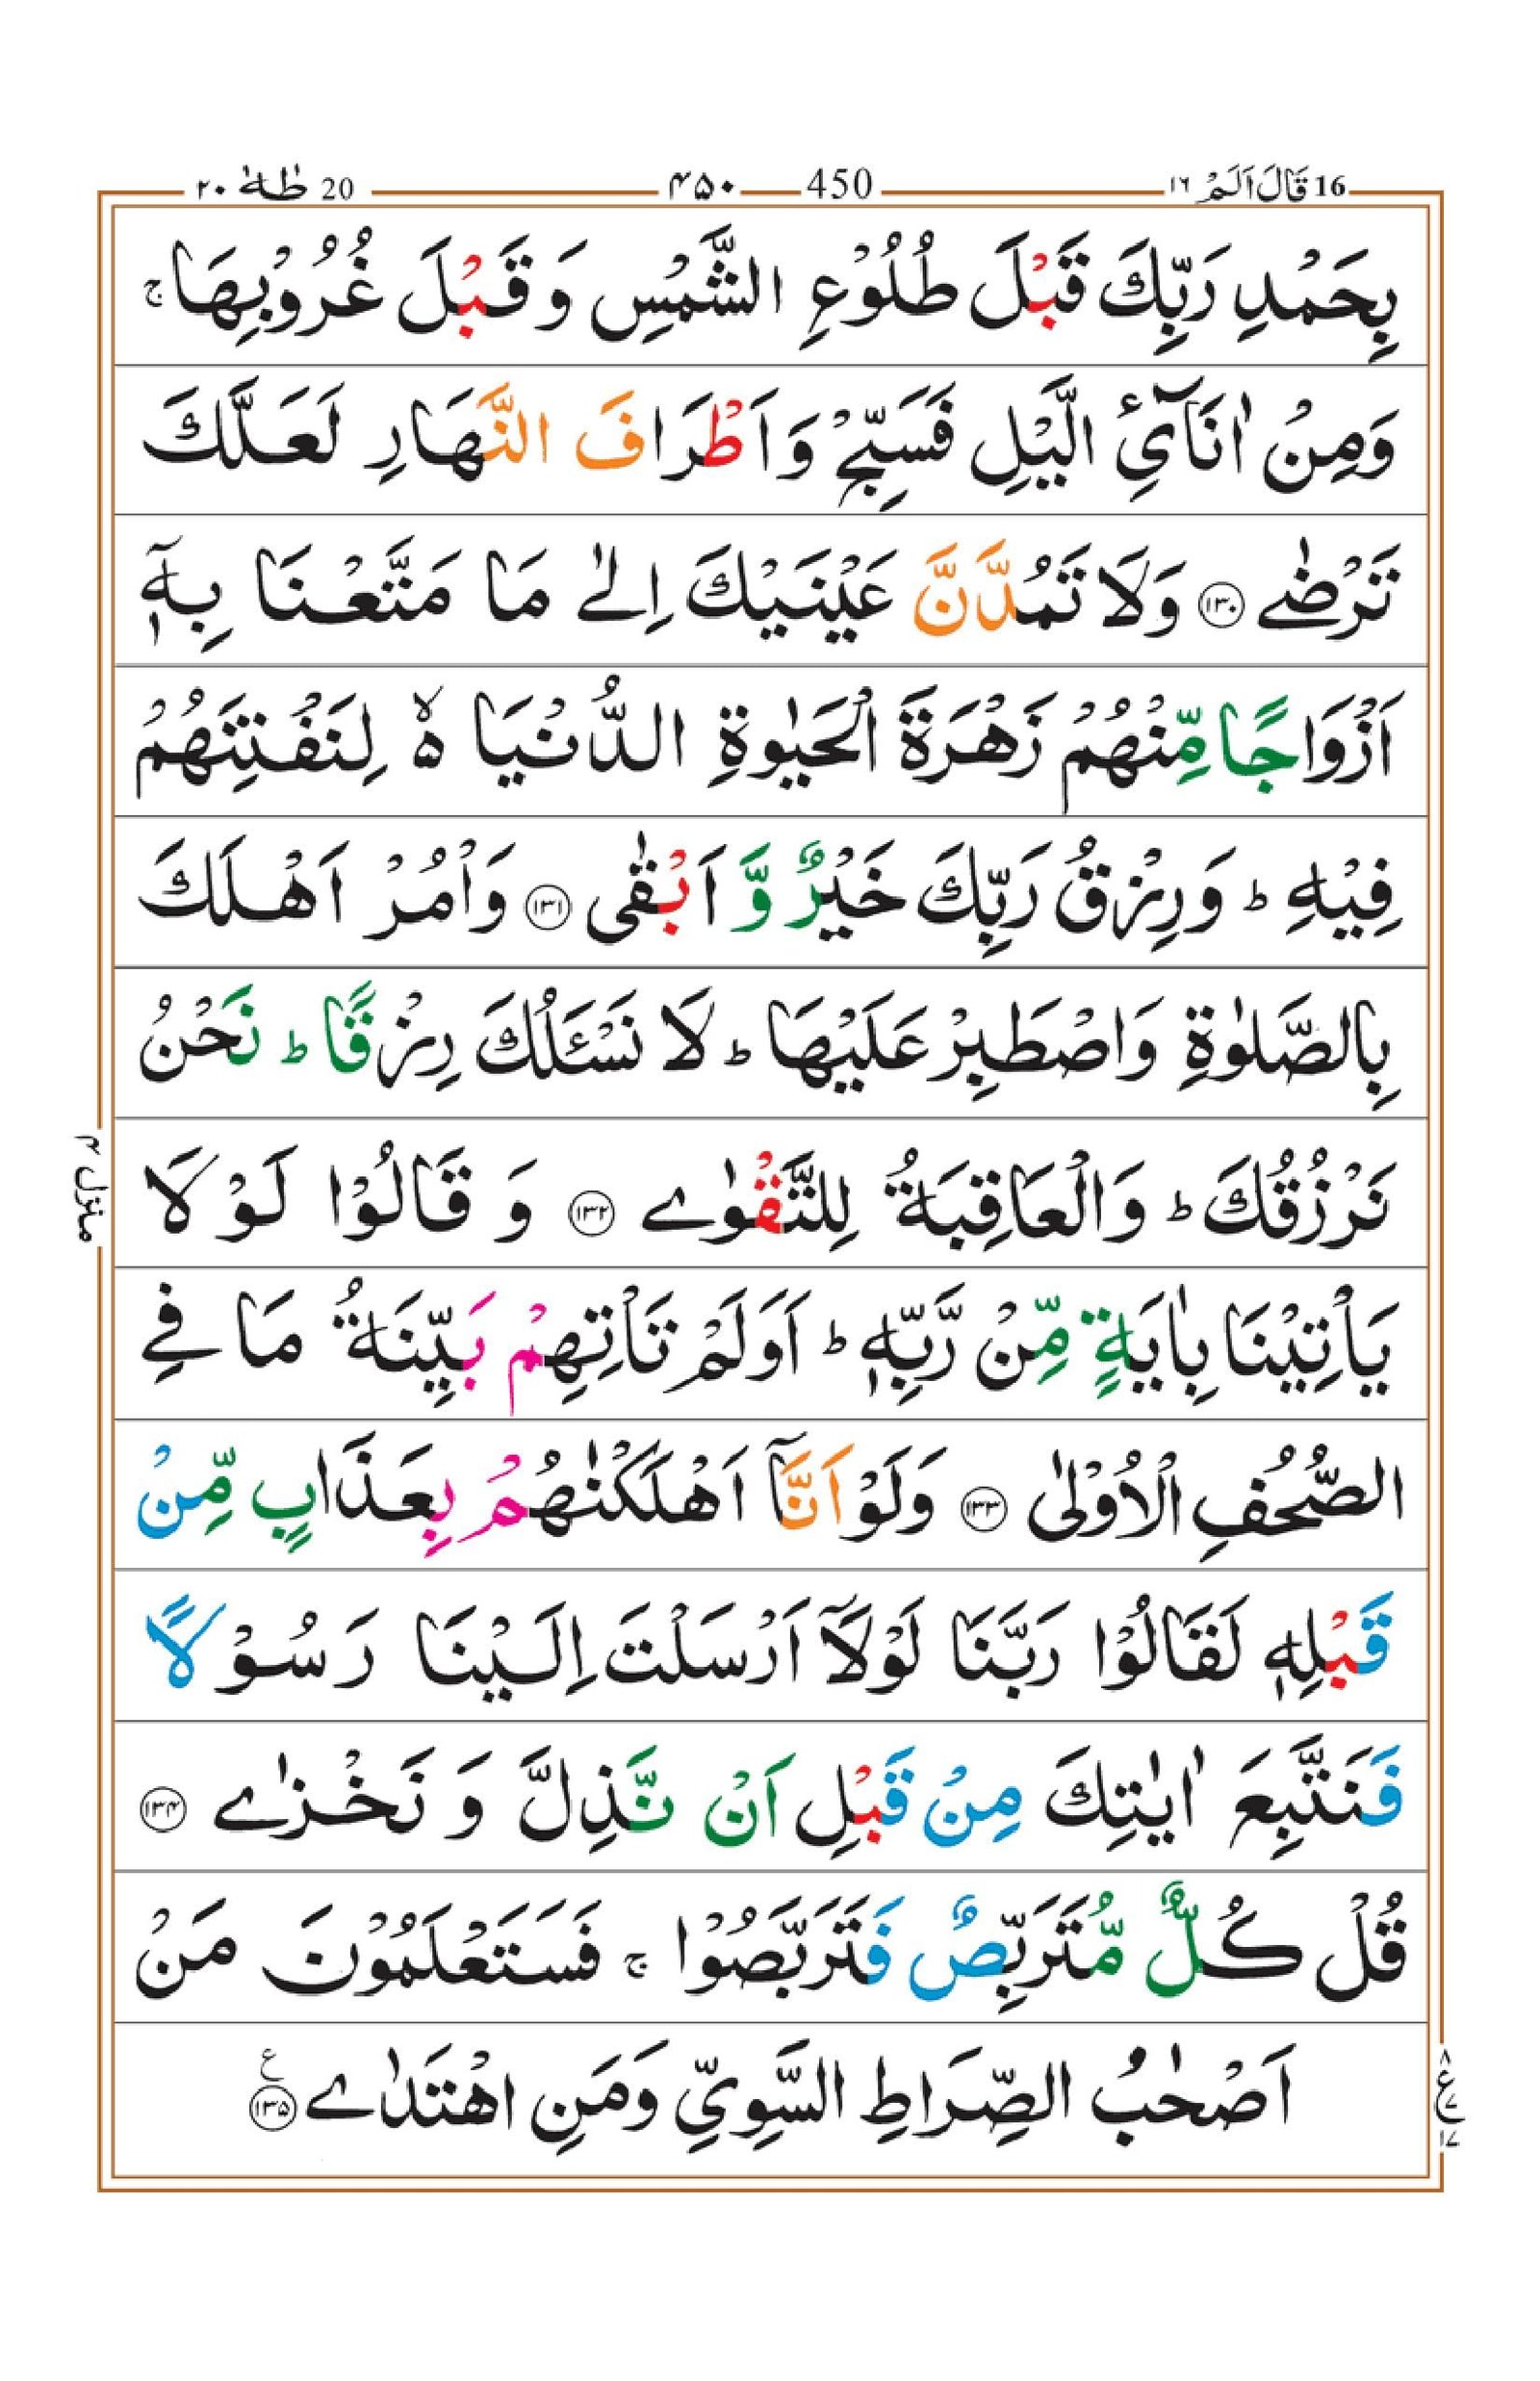 16 قَالَ اَلَمْ ١٦ 450 ۴۵۰ 20 طٰهٰ ٢٠
بِحَمْدِ رَبِّكَ قَبْلَ طُلُوْعِ الشَّمْسِ وَ قَبْلَ غُرُوْبِهَا ۚ
وَمِنْ اٰنَآئِ الَّيْلِ فَسَبِّحْ وَاَطْرَافَ النَّهَارِ لَعَلَّكَ
تَرْضٰے ﴿۱۳۰﴾ وَلَا تَمُدَّنَّ عَيْنَيْكَ اِلٰے مَا مَتَّعْنَا بِهٖٓ
اَزْوَاجًا مِّنْهُمْ زَهْرَةَ الْحَيٰوةِ الدُّنْيَا ۙ۬ لِنَفْتِنَهُمْ
فِيْهِ ؕ وَرِزْقُ رَبِّكَ خَيْرٌ وَّ اَبْقٰى ﴿۱۳۱﴾ وَاْمُرْ اَهْلَكَ
بِالصَّلٰوةِ وَاصْطَبِرْ عَلَيْهَا ؕ لَا نَسْئَلُكَ رِزْقًا ؕ نَحْنُ
نَرْزُقُكَ ؕ وَالْعَاقِبَةُ لِلتَّقْوٰے ﴿۱۳۲﴾ وَ قَالُوْا لَوْ لَا
يَاْتِيْنَا بِاٰيَةٍ مِّنْ رَّبِّهٖ ؕ اَوَلَمْ تَاْتِهِمْ بَيِّنَةُ مَا فِے
الصُّحُفِ الْاُوْلٰى ﴿۱۳۳﴾ وَلَوْ اَنَّآ اَهْلَكْنٰهُمْ بِعَذَابٍ مِّنْ
قَبْلِهٖ لَقَالُوْا رَبَّنَا لَوْلَآ اَرْسَلْتَ اِلَيْنَا رَسُوْلًا
فَنَتَّبِعَ اٰيٰتِكَ مِنْ قَبْلِ اَنْ نَّذِلَّ وَ نَخْزٰے ﴿۱۳۴﴾
قُلْ كُلٌّ مُّتَرَبِّصٌ فَتَرَبَّصُوْا ۚ فَسَتَعْلَمُوْنَ مَنْ
اَصْحٰبُ الصِّرَاطِ السَّوِيِّ وَمَنِ اهْتَدٰے ﴿۱۳۵﴾ ع
منزل ۴
٨
ع ٧
١٧